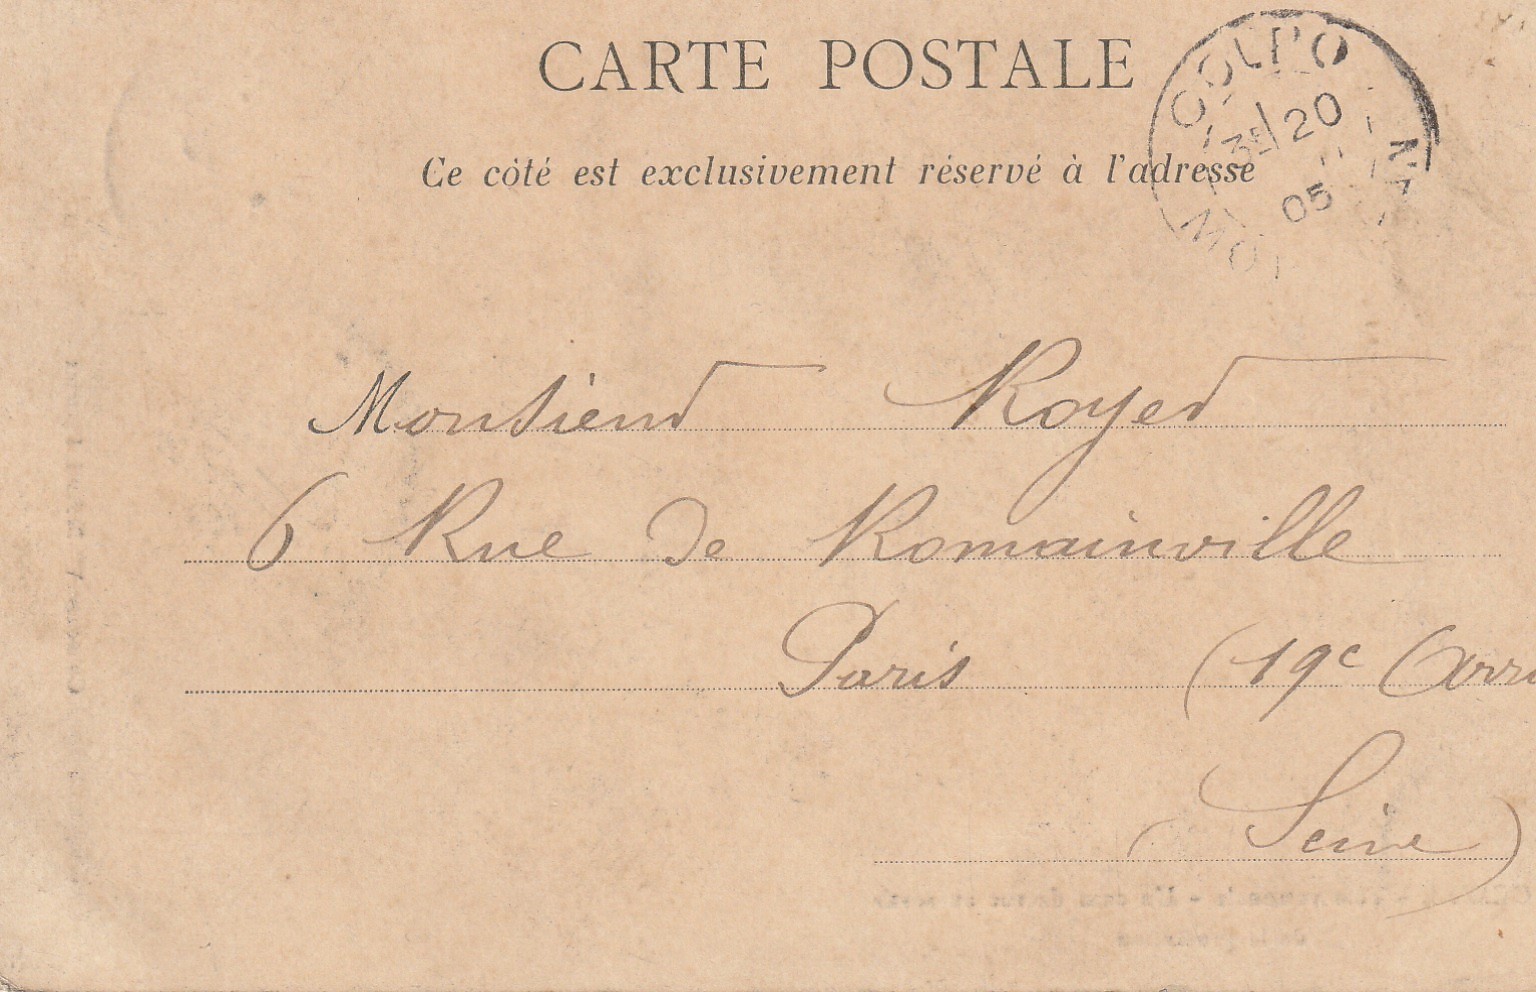 CARTE POSTALE
Ce côté est exclusivement réservé à l'adresse
COLPO
3E/20
05
MO
Monsieur Royer
6 Rue de Romainville
Paris (19e Arr
(Seine)